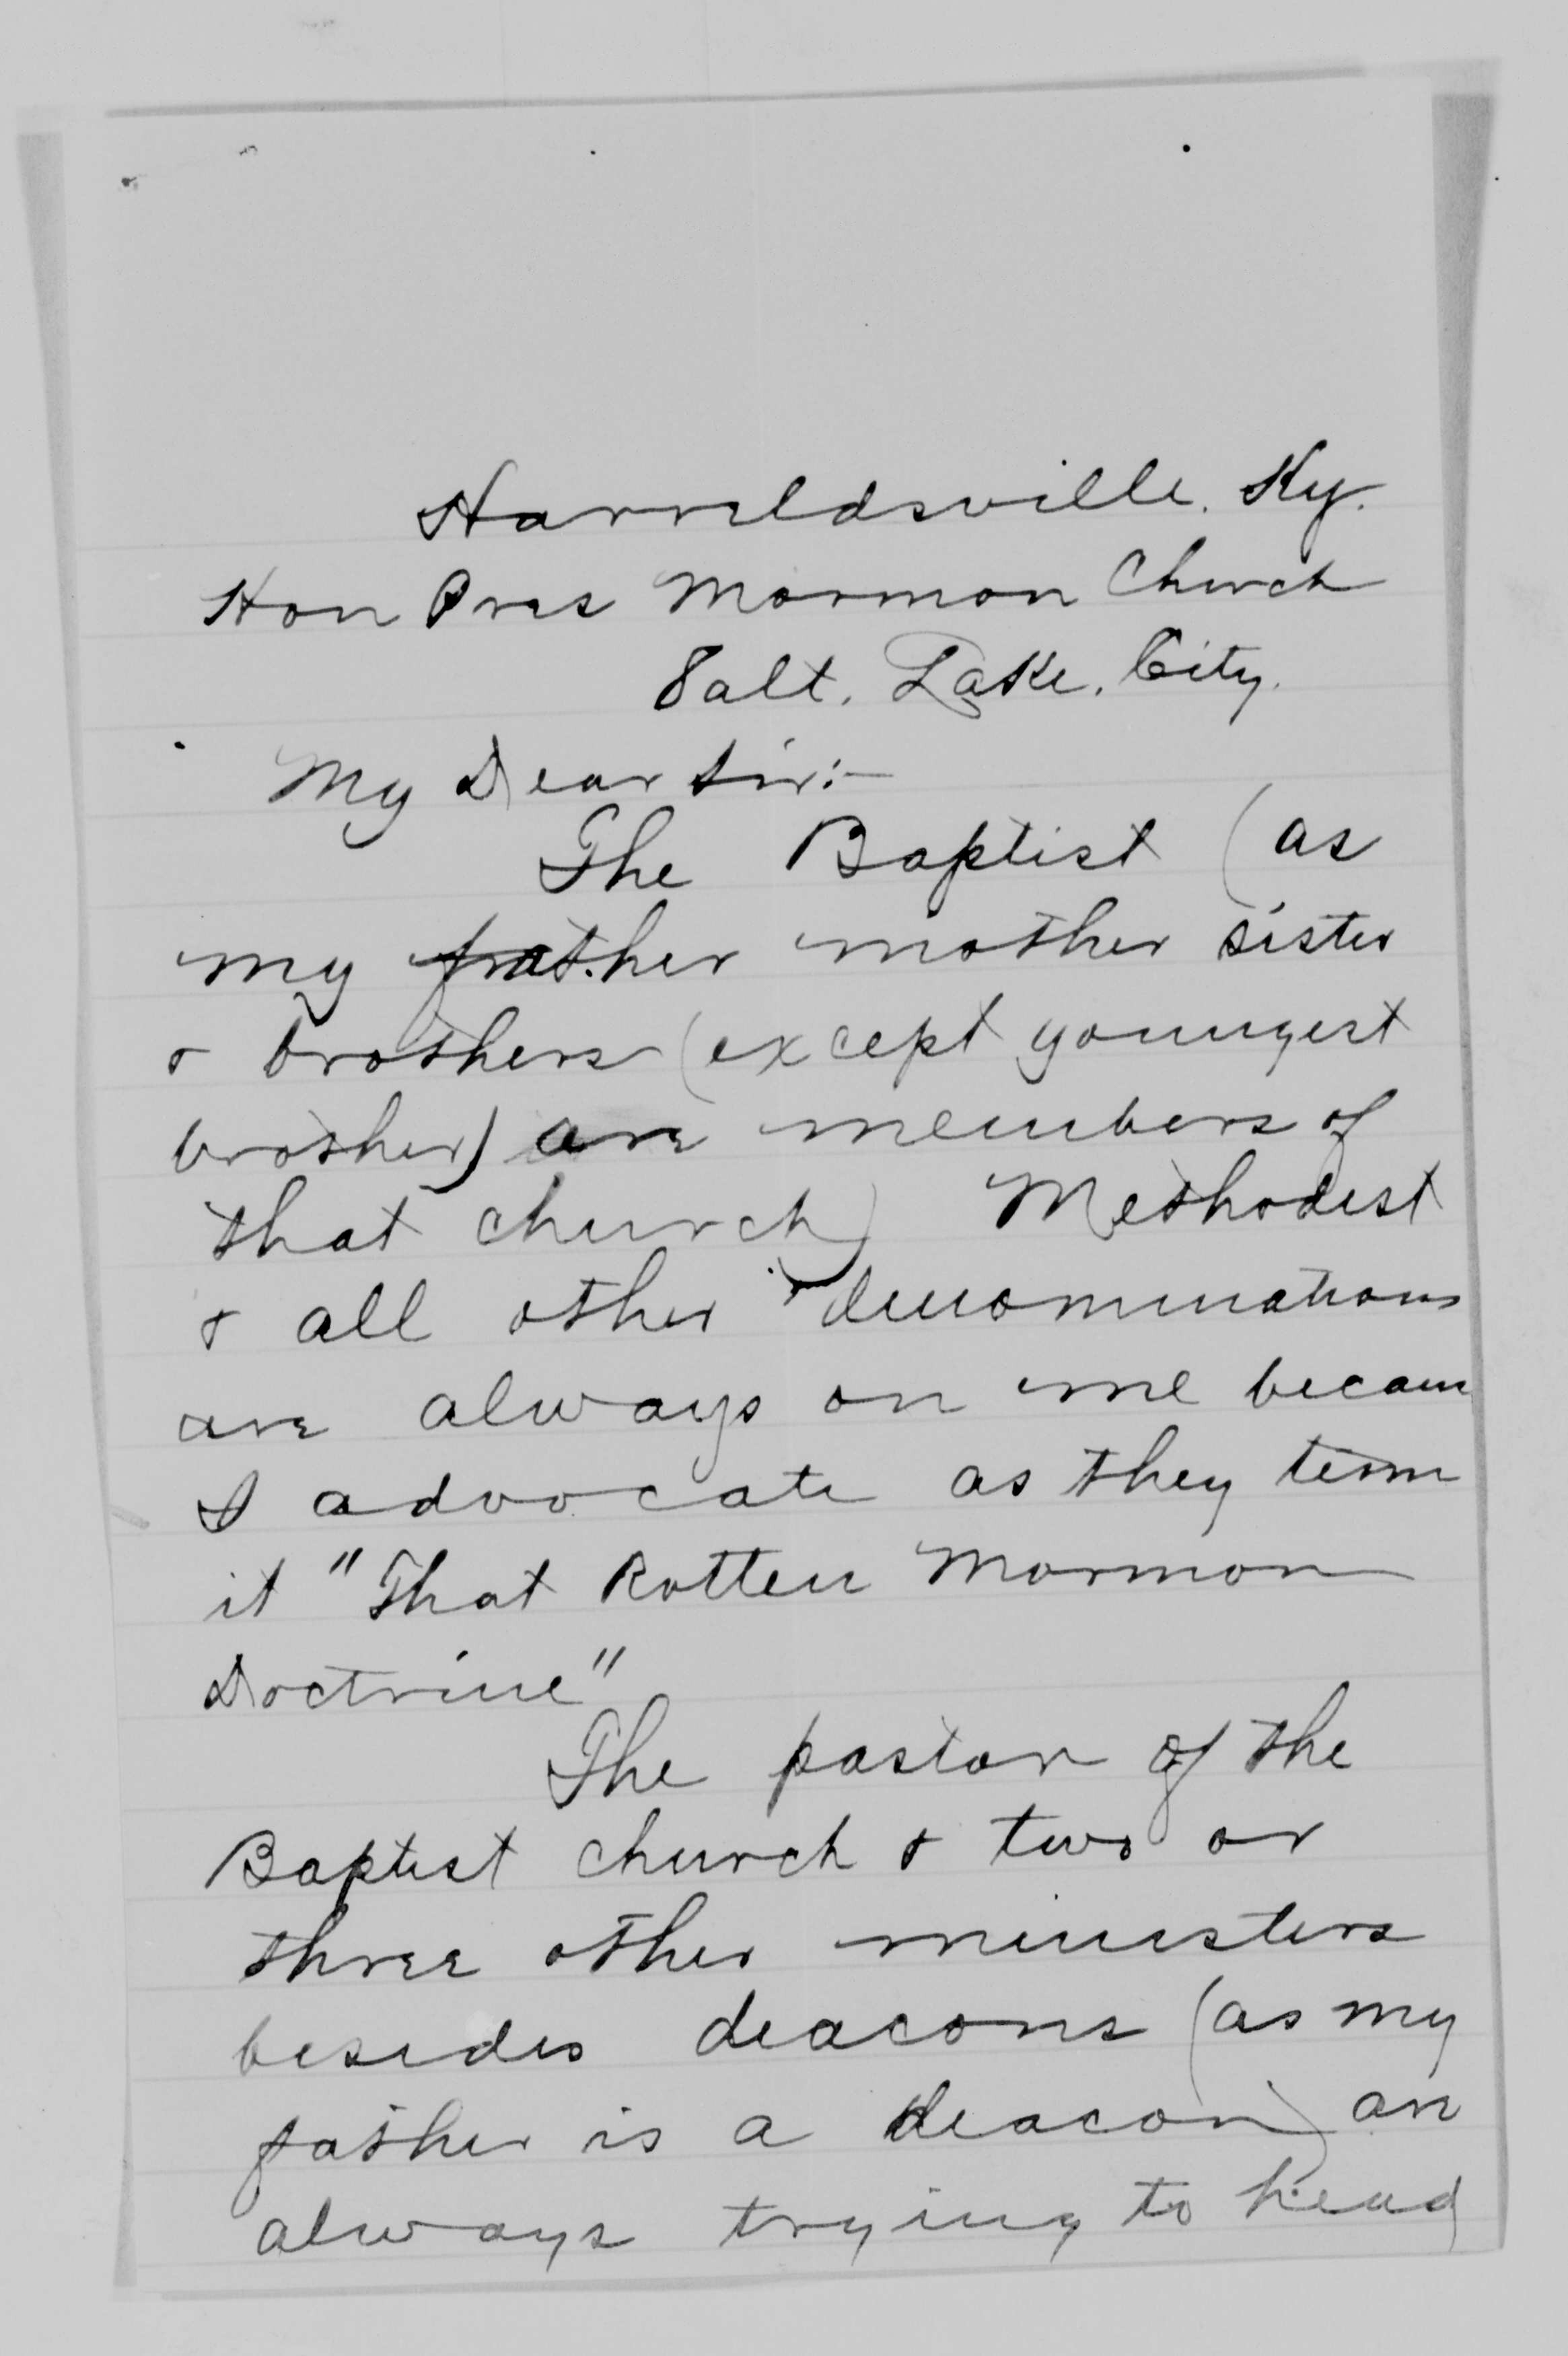 Harreldsville. Ky.
Hon Pres Mormon Church
Salt. Lake. City.
My Dear Sir:-
The Baptist (as
my father mother sister
& brothers (except youngest
brother) are members of
that church) Methodist
& all other denominations
are always on me becaus
I advocate as they term
it "That Rotten Mormon
Doctrine"
The pastor of the
Baptist church & two or
three other ministers
besides deacons (as my
father is a deacon) are
always trying to head